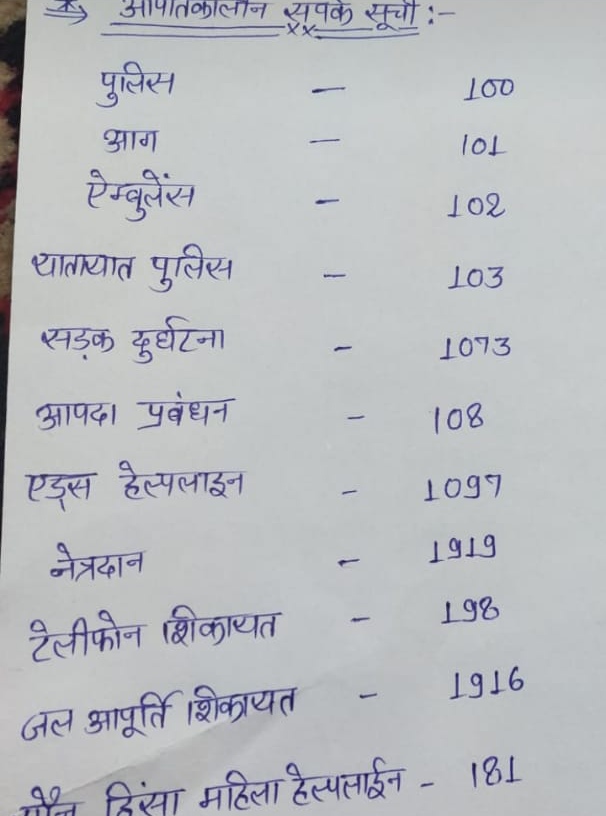 आपातकालीन संपर्क सूची :-
पुलिस - 100
आग - 101
ऐम्बुलेंस - 102
यातायात पुलिस - 103
सड़क दुर्घटना - 1073
आपदा प्रबंधन - 108
एड्स हेल्पलाइन - 1097
नेत्रदान - 1919
टेलीफोन शिकायत - 198
जल आपूर्ति शिकायत - 1916
यौन हिंसा महिला हेल्पलाईन - 181